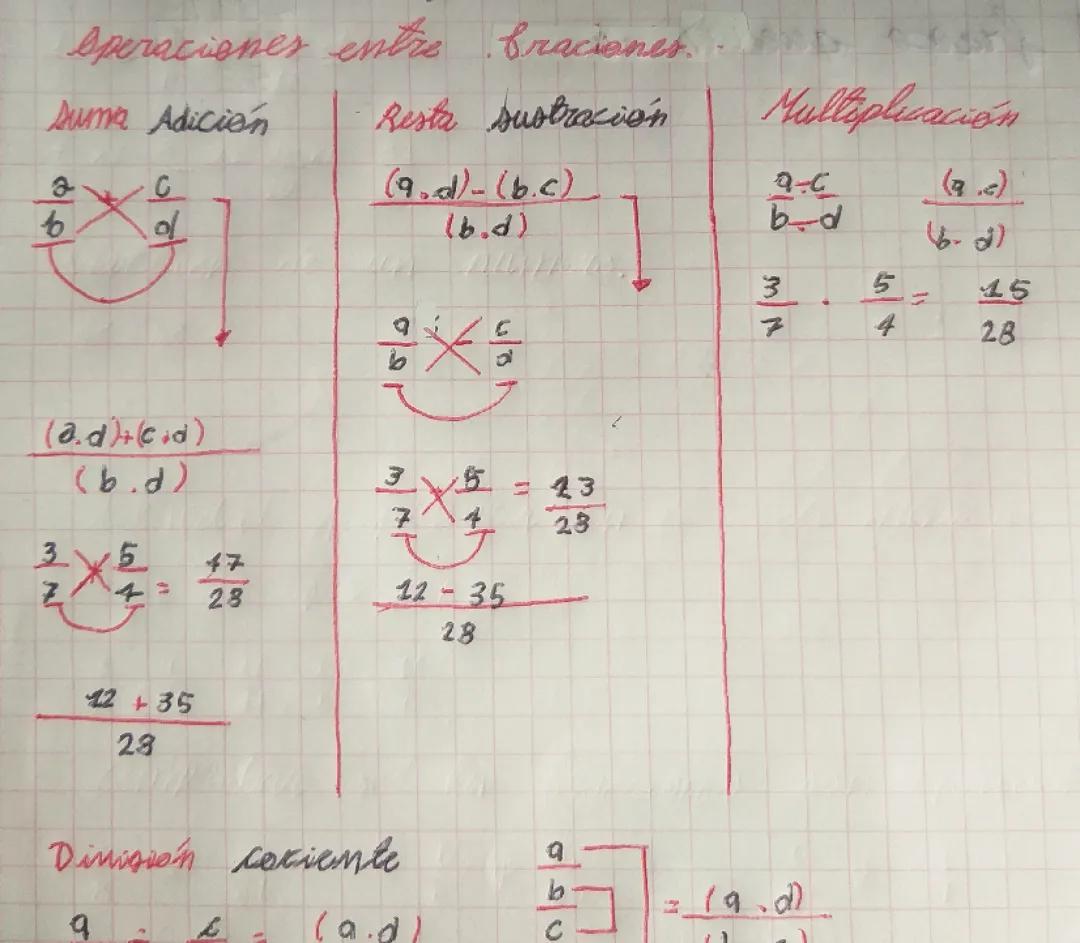 Operaciones entre fraciones.
Suma Adición
a c
b d
(a.d)+(c.d)
(b.d)
3 5 = 47
7 4 28
12 + 35
28
Resta sustración
(a.d)-(b.c)
(b.d)
a - c
b d
3 5 = 23
7 4 28
12 - 35
28
Multiplicación
a.c (a.c)
b.d (b.d)
3 . 5 = 15
7 4 28
División cociente
a ÷ c = (a.d)
a
b
c
= (a.d)